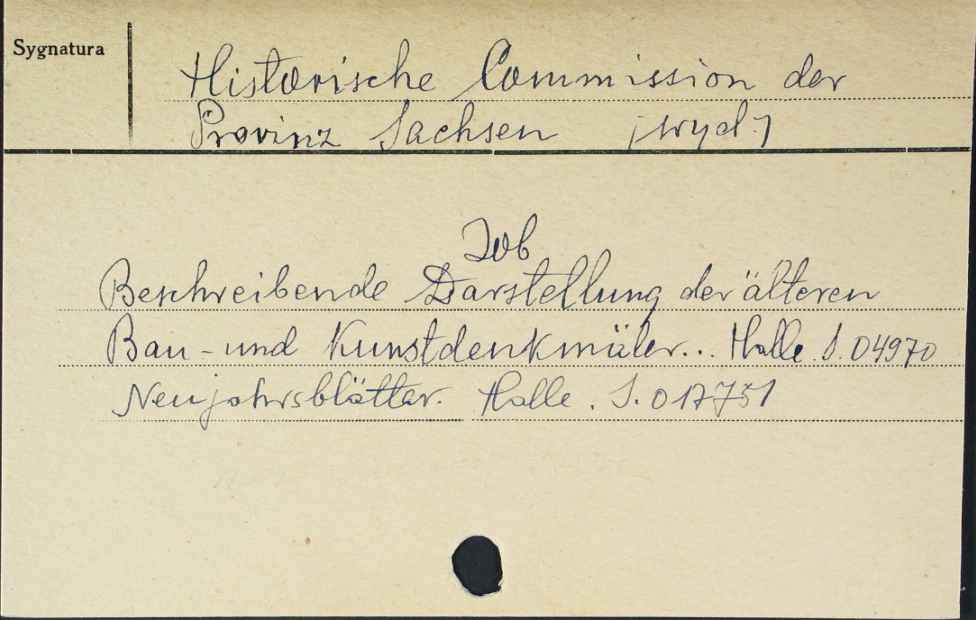 Sygnatura
Historische Commission der
Provinz Sachsen [wyd.]
Beschreibende Darstellung der älteren
Bau- und Kunstdenkmäler... Halle. S. 04970
Neujahrsblätter. Halle. S. 017751